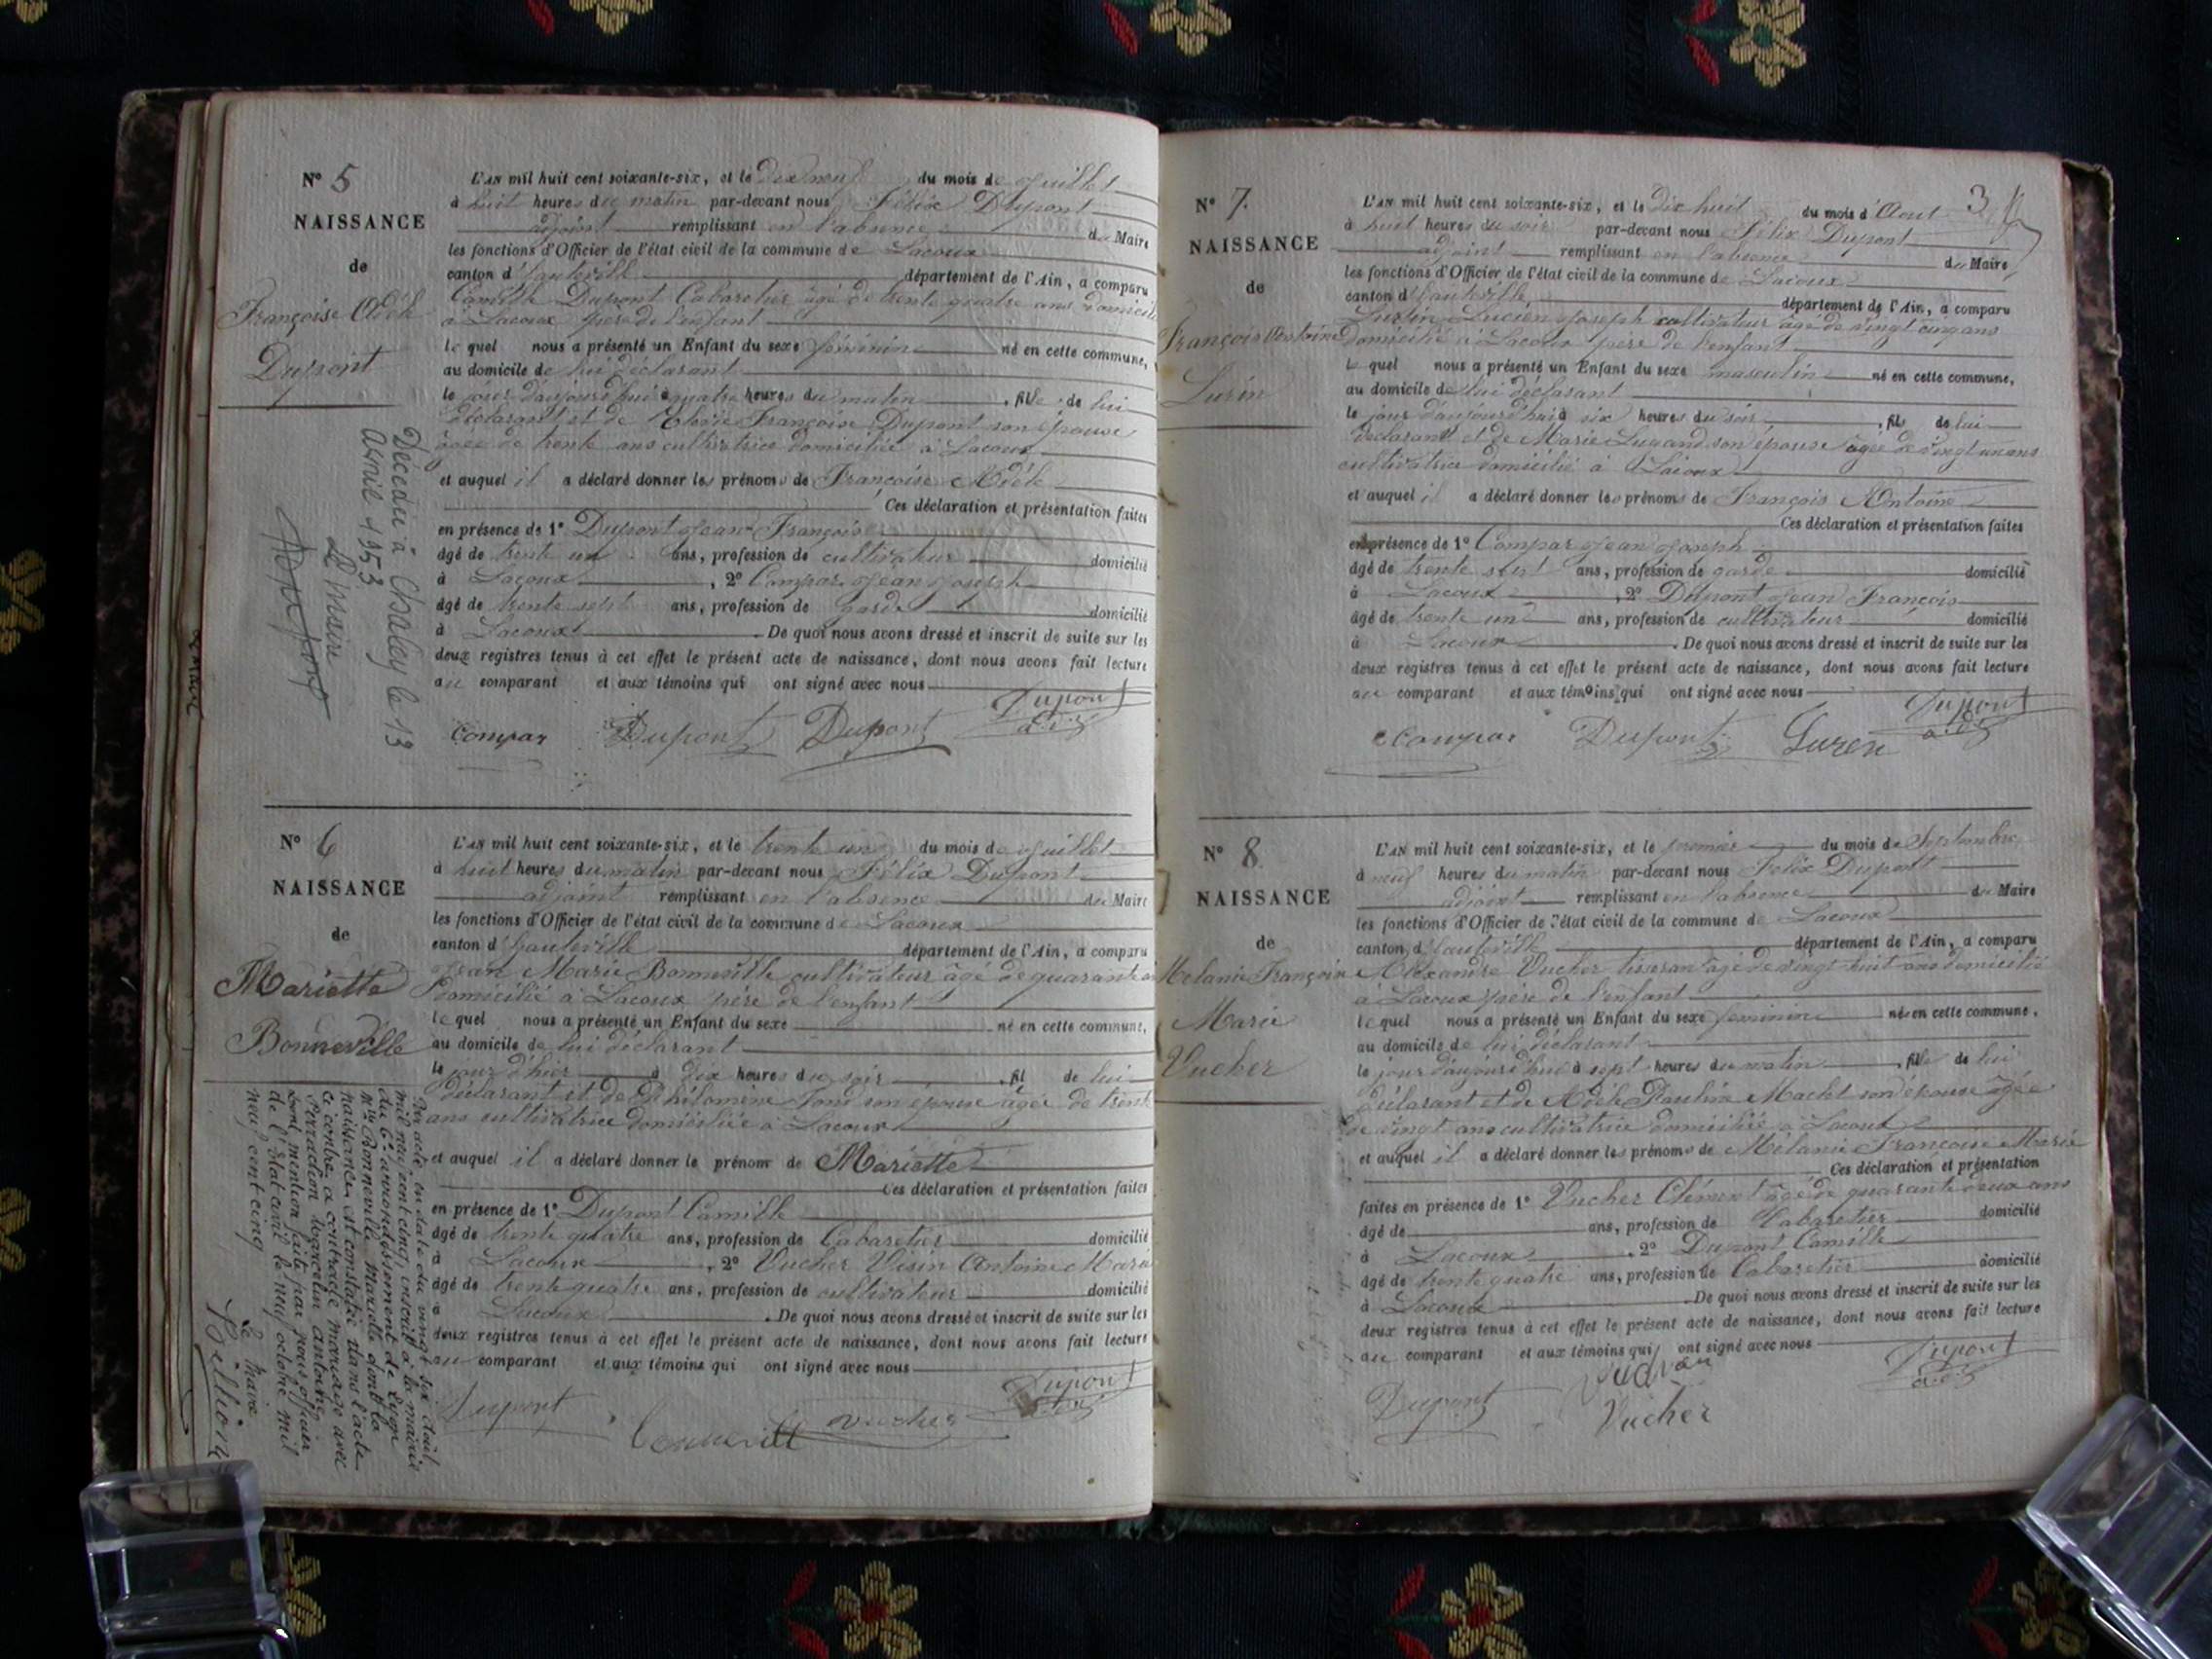 N° 5
NAISSANCE
de
Françoise Adèle
Dupont
L'AN mil huit cent soixante-six, et le Dix neuf du mois de Juillet
à huit heures du matin par-devant nous Félix Dupont
adjoint remplissant en l'absence du Maire
les fonctions d'Officier de l'état civil de la commune de Lacoux
canton d'hauteville département de l'Ain, a comparu
Camille Dupont Cabaretier âgé de trente quatre ans domicilié
à Lacoux père de l'enfant
lequel nous a présenté un Enfant du sexe féminin né en cette commune,
au domicile de lui déclarant
le jour d'aujourd'hui à quatre heures du matin, fille de lui
déclarant et de Françoise Dupont son épouse
âgée de trente ans cultivatrice domiciliée à Lacoux
et auquel il a déclaré donner les prénoms de Françoise Adèle
Ces déclaration et présentation faites
en présence de 1° Dupont Jean François
âgé de trente un ans, profession de cultivateur domicilié
à Lacoux, 2° Compar Jean Joseph
âgé de trente sept ans, profession de garde domicilié
à Lacoux. De quoi nous avons dressé et inscrit de suite sur les
deux registres tenus à cet effet le présent acte de naissance, dont nous avons fait lecture
au comparant et aux témoins qui ont signé avec nous
Compar Dupont Dupont Dupont
adj
Décédée à Chaley le 13
Avril 1953
Le Maire
N° 6
NAISSANCE
de
Mariette
Bonneville
L'AN mil huit cent soixante-six, et le trente un du mois de Juillet
à huit heures du matin par-devant nous Félix Dupont
adjoint remplissant en l'absence du Maire
les fonctions d'Officier de l'état civil de la commune de Lacoux
canton d'hauteville département de l'Ain, a comparu
Jean Marie Bonneville cultivateur âgé de quarante
domicilié à Lacoux père de l'enfant
lequel nous a présenté un Enfant du sexe né en cette commune,
au domicile de lui déclarant
le jour d'hier à dix heures du soir, fil de lui
déclarant et de Philomène son épouse âgée de trente
ans cultivatrice domiciliée à Lacoux
et auquel il a déclaré donner le prénom de Mariette
Ces déclaration et présentation faites
en présence de 1° Dupont Camille
âgé de trente quatre ans, profession de Cabaretier domicilié
à Lacoux, 2° Vucher Antoine Marie
âgé de trente quatre ans, profession de cultivateur domicilié
à Lacoux. De quoi nous avons dressé et inscrit de suite sur les
deux registres tenus à cet effet le présent acte de naissance, dont nous avons fait lecture
au comparant et aux témoins qui ont signé avec nous
Dupont
adj
Dupont Bonneville Vucher
Par acte en date du vingt six août
mil neuf cent cinq, inscrit à la mairie
du 6e arrondissement de Lyon
Mlle Bonneville Mariette dont la
naissance est constatée dans l'acte
ci contre, a contracté mariage avec
Perradin Marcelin Antoine
Dont mention faite par nous officier
de l'Etat civil le neuf octobre mil
neuf cent cinq
Le Maire
N° 7
NAISSANCE
de
François Antoine
Luzin
3
L'AN mil huit cent soixante-six, et le Dix huit du mois d'Aout
à huit heures du soir par-devant nous Félix Dupont
adjoint remplissant en l'absence du Maire
les fonctions d'Officier de l'état civil de la commune de Lacoux
canton d'hauteville département de l'Ain, a comparu
Lucien Joseph cultivateur âgé de vingt cinq ans
domicilié à Lacoux père de l'enfant
Le quel nous a présenté un Enfant du sexe masculin né en cette commune,
au domicile de lui déclarant
le jour d'aujourd'hui à six heures du soir, fils de lui
déclarant et de Marie Lugand son épouse âgée de vingt un ans
cultivatrice domicilié à Lacoux
et auquel il a déclaré donner les prénoms de François Antoine
Ces déclaration et présentation faites
en présence de 1° Compar Jean Joseph
âgé de trente sept ans, profession de garde domicilié
à Lacoux, 2° Dupont Jean François
âgé de trente un ans, profession de cultivateur domicilié
à Lacoux. De quoi nous avons dressé et inscrit de suite sur les
deux registres tenus à cet effet le présent acte de naissance, dont nous avons fait lecture
au comparant et aux témoins qui ont signé avec nous
Dupont
adj
Compar Dupont
N° 8
NAISSANCE
de
Mélanie Françoise
Marie
Vucher
L'AN mil huit cent soixante-six, et le premier du mois de Septembre
à neuf heures du matin par-devant nous Félix Dupont
adjoint remplissant en l'absence du Maire
les fonctions d'Officier de l'état civil de la commune de Lacoux
canton d'hauteville département de l'Ain, a comparu
Alexandre Vucher tisserand âgé de vingt huit ans domicilié
à Lacoux père de l'enfant
lequel nous a présenté un Enfant du sexe féminin né en cette commune,
au domicile de lui déclarant
le jour d'aujourd'hui à sept heures du matin, fille de lui
déclarant et de Adèle Pauline son épouse âgée
de vingt ans cultivatrice domicilié à Lacoux
et auquel il a déclaré donner les prénoms de Mélanie Françoise Marie
Ces déclaration et présentation
faites en présence de 1° Vucher Clément âgé de quarante deux ans
âgé de ans, profession de Cabaretier domicilié
à Lacoux, 2° Dupont Camille
âgé de trente quatre ans, profession de Cabaretier domicilié
à Lacoux. De quoi nous avons dressé et inscrit de suite sur les
deux registres tenus à cet effet le présent acte de naissance, dont nous avons fait lecture
au comparant et aux témoins qui ont signé avec nous
Dupont
adj
Dupont Vucher